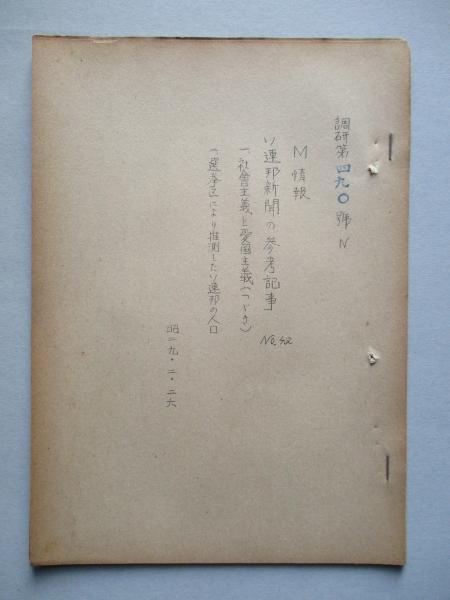 調研第四九〇號 N
M情報
ソ連邦新聞の参考記事 No.42
一、社會主義と愛国主義(つゞき)
一、選挙区により推測したソ連邦の人口
昭二九・二・二六